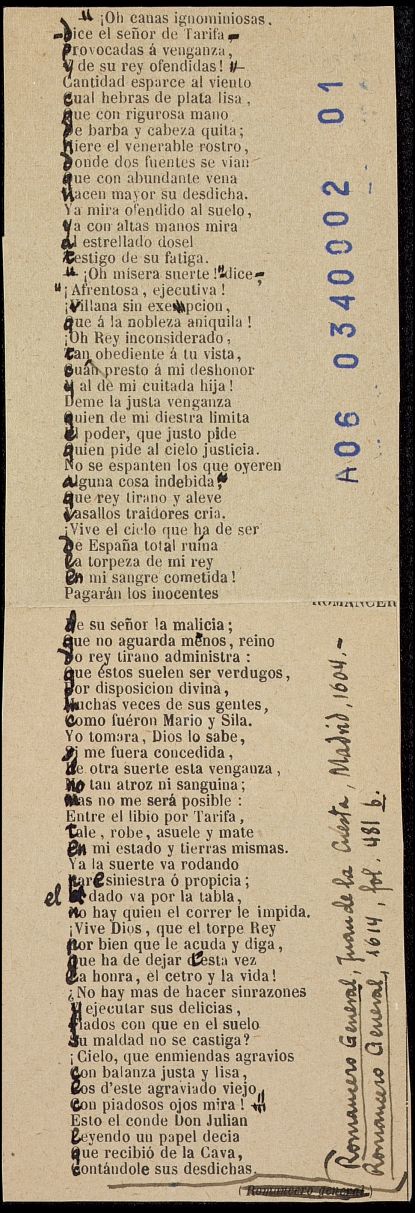 " ¡Oh canas ignominiosas,
—dice el señor de Tarifa—
provocadas á venganza,
y de su rey ofendidas! "—
Cantidad esparce al viento
cual hebras de plata lisa,
que con rigurosa mano
de barba y cabeza quita;
hiere el venerable rostro,
donde dos fuentes se vian
que con abundante vena
hacen mayor su desdicha.
Ya mira ofendido al suelo,
ya con altas manos mira
al estrellado dosel
testigo de su fatiga.
" ¡Oh misera suerte! "dice—
" ¡Afrentosa, ejecutiva!
¡Villana sin exempcion,
que á la nobleza aniquila!
¡Oh Rey inconsiderado,
tan obediente á tu vista,
cuán presto á mi deshonor
y al de mi cuitada hija!
Deme la justa venganza
quien de mi diestra limita
el poder, que justo pide
quien pide al cielo justicia.
No se espanten los que oyeren
alguna cosa indebida,
que rey tirano y aleve
vasallos traidores cria.
¡Vive el cielo que ha de ser
de España total ruína
la torpeza de mi rey
en mi sangre cometida!
Pagarán los inocentes
ROMANCER
de su señor la malicia;
que no aguarda ménos, reino
do rey tirano administra:
que éstos suelen ser verdugos,
por disposicion divina,
muchas veces de sus gentes,
como fuéron Mario y Sila.
Yo tomara, Dios lo sabe,
si me fuera concedida,
de otra suerte esta venganza,
no tan atroz ni sanguina;
mas no me será posible:
Entre el libio por Tarifa,
tale, robe, asuele y mate
en mi estado y tierras mismas.
Ya la suerte va rodando
pare siniestra ó propicia;
el dado va por la tabla,
no hay quien el correr le impida.
¡Vive Dios, que el torpe Rey
por bien que le acuda y diga,
que ha de dejar d'esta vez
la honra, el cetro y la vida!
¿No hay mas de hacer sinrazones
y ejecutar sus delicias,
fiados con que en el suelo
su maldad no se castiga?
¡Cielo, que enmiendas agravios
con balanza justa y lisa,
los d'este agraviado viejo
con piadosos ojos mira! "
Esto el conde Don Julian
leyendo un papel decia
que recibió de la Cava,
contándole sus desdichas.
(Romancero general.)
Romancero General, Juan de la Cuesta, Madrid, 1604.—
Romancero General, 1614, fol. 481 b.
A06 0340002 01